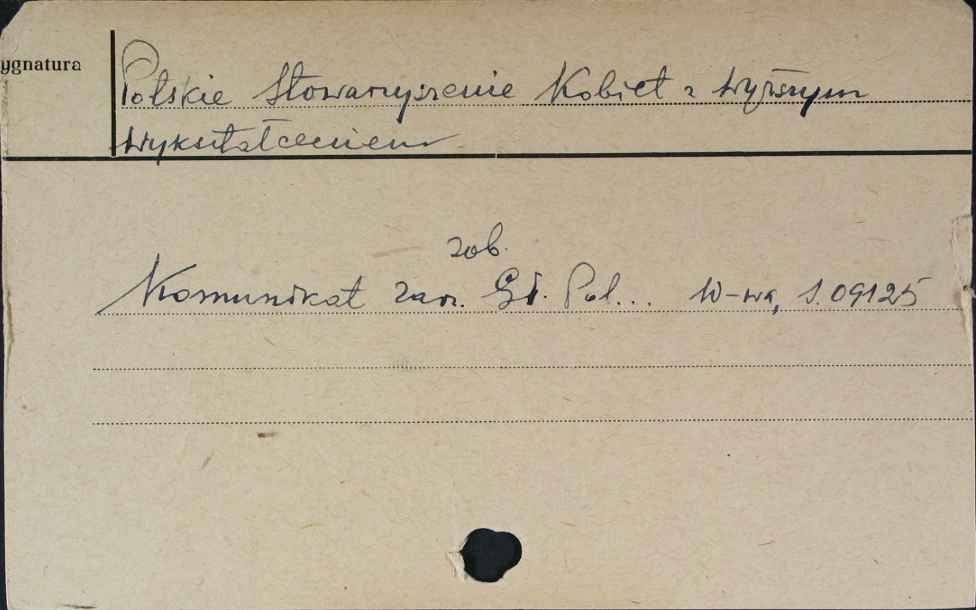 ygnatura
Polskie Stowarzyszenie Kobiet z wyższym
wykształceniem
zob.
Komunikat Zarz. Gł. Pol... W-wa, S.09125